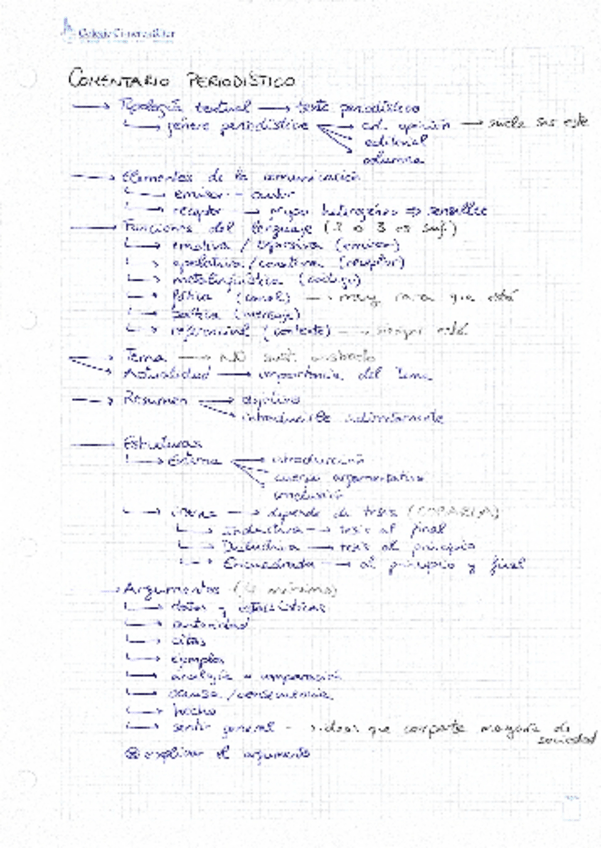 COMENTARIO PERIODÍSTICO
→ Tipología textual → texto periodístico
↳ género periodístico → art. opinión → suele ser este
→ editorial
→ columna
→ Elementos de la comunicación
↳ emisor - autor
↳ receptor → grupo heterogéneo ⇒ sencillez
→ Funciones del lenguaje (2 o 3 es suf.)
↳ emotiva / expresiva (emisor)
↳ apelativa / conativa (receptor)
↳ metalingüística (código)
↳ fática (canal) → muy rara que esté
↳ (mensaje)
↳ referencial (contexto) → siempre está
→ Tema → NO sust. abstracto
→ Actualidad → importancia del tema
→ Resumen → objetivo
→ indirectamente
→ Estructuras
↳ Externa → introducción
→ cuerpo argumentativo
→ conclusión
↳ interna → depende de tesis
↳ Inductiva → tesis al final
↳ Deductiva → tesis al principio
↳ Encuadrada → al principio y final
→ Argumentos (4 mínimo)
↳ datos y estadísticas
↳ autoridad
↳ citas
↳ ejemplos
↳ analogía o comparación
↳ causa / consecuencia
↳ hecho
↳ sentir general → ideas que comparte mayoría de
sociedad
⊛ explicar el argumento